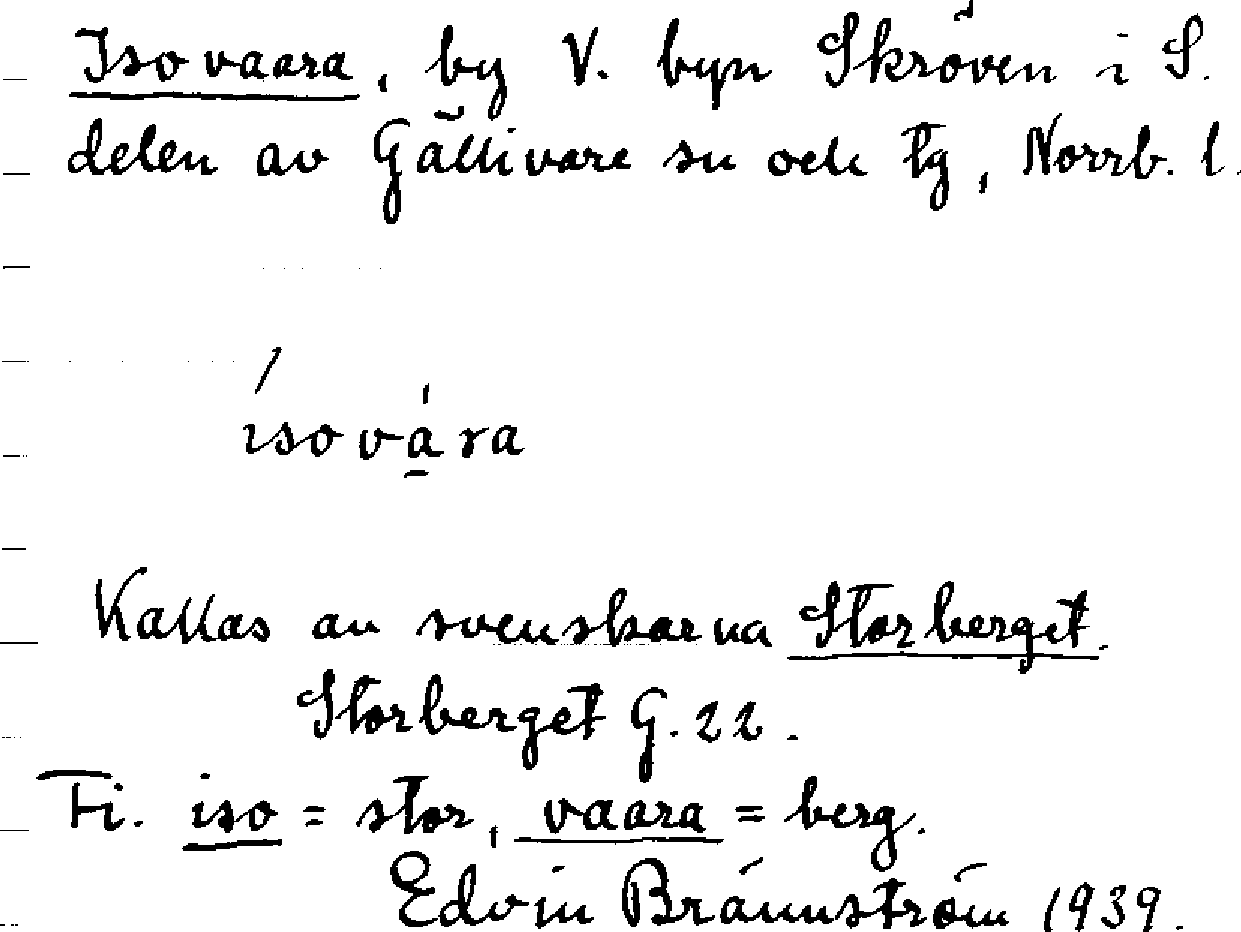 Isovaara, by V. byn Skröven i S.
delen av Gällivare sn och tg, Norrb. l.
ísovà̱ra
Kallas av svenskarna Storberget.
Storberget G. 22.
Fi. iso = stor, vaara = berg.
Edvin Brännström 1939.